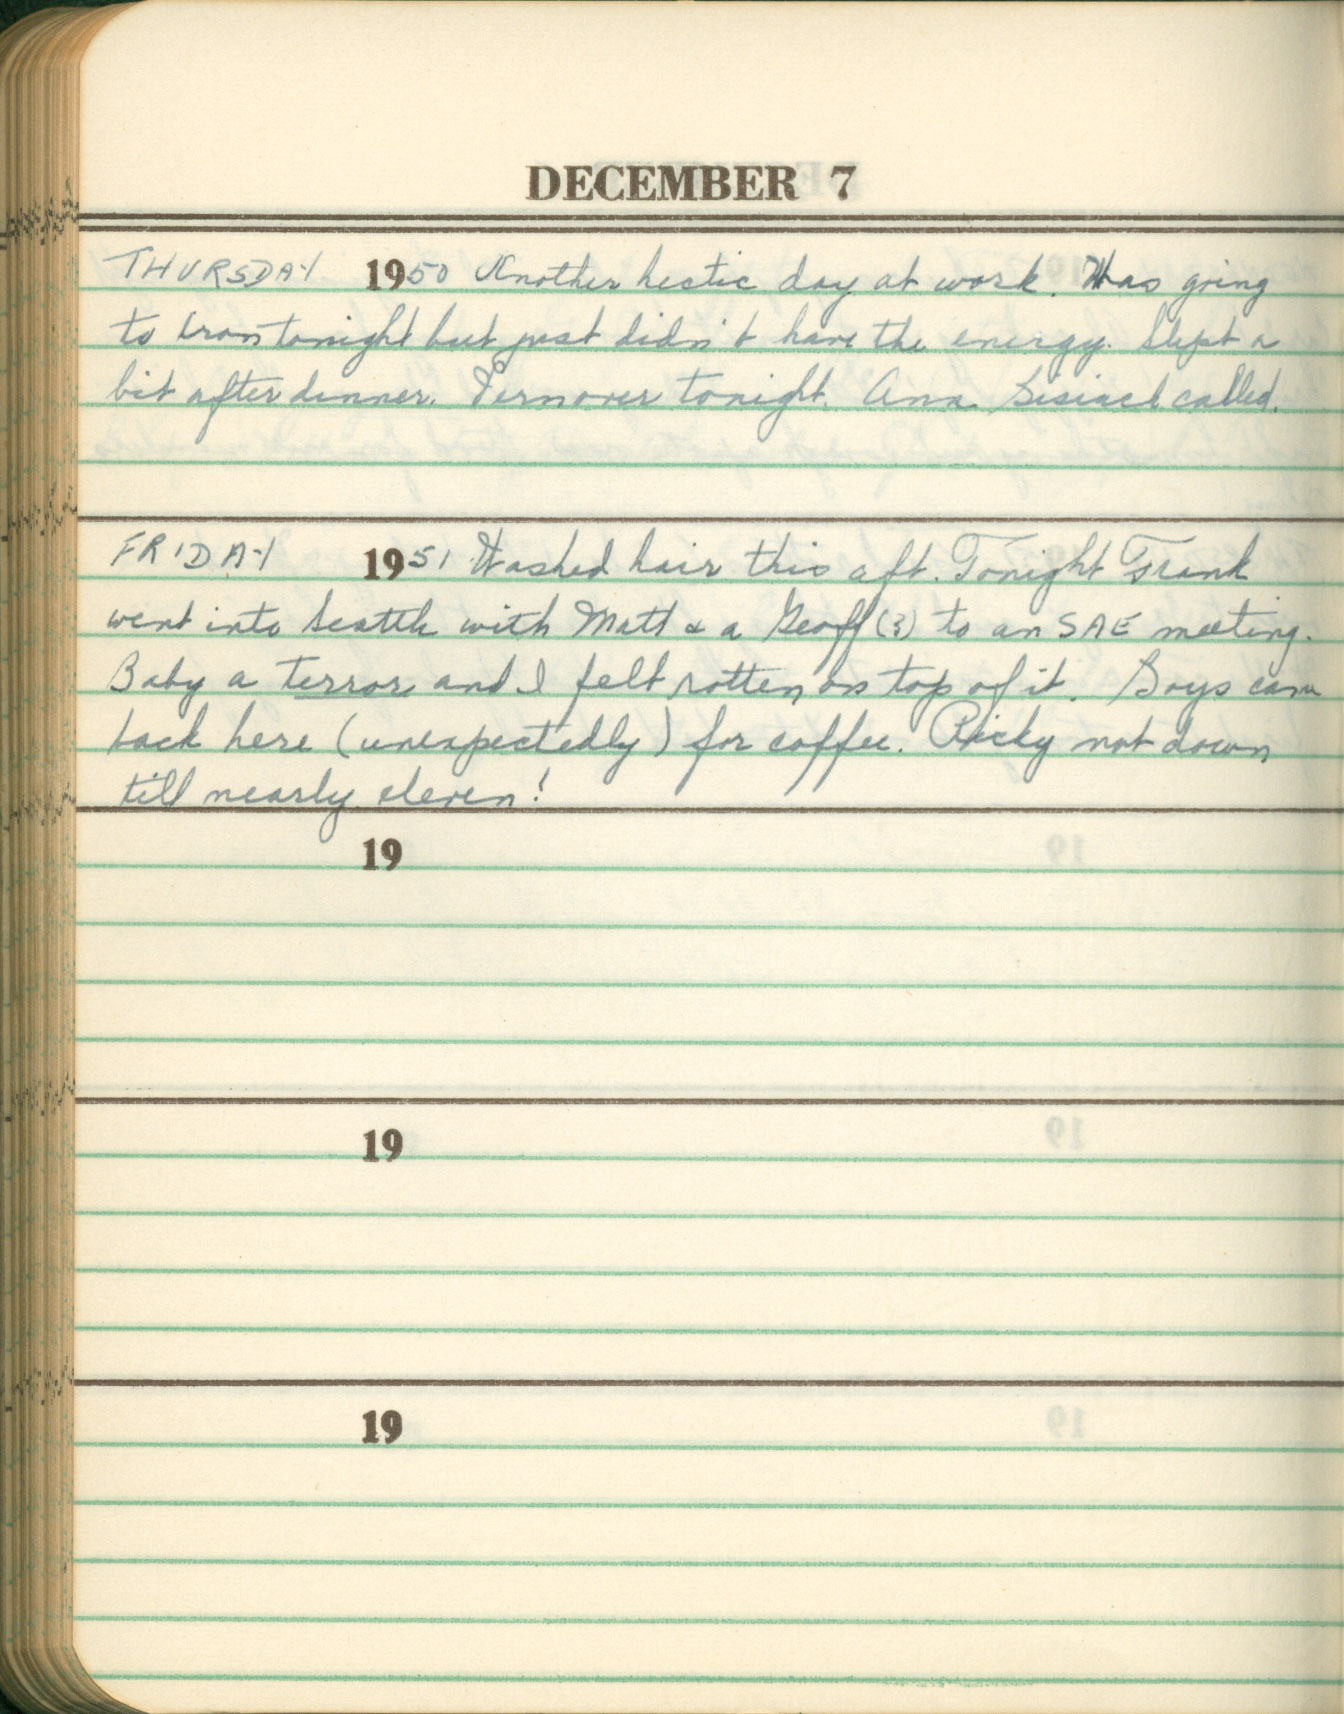 DECEMBER 7
THURSDAY 1950 Another hectic day at work. Was going
to iron tonight but just didn't have the energy. Slept a
bit after dinner. Vern over tonight. Ann called.
FRIDAY 1951 Washed hair this aft. Tonight Frank
went into Seattle with Matt & a Geoff (?) to an SAE meeting.
Baby a terror and I felt rotten on top of it. Boys came
back here (unexpectedly) for coffee. Ricky not down
till nearly eleven!
19
19
19